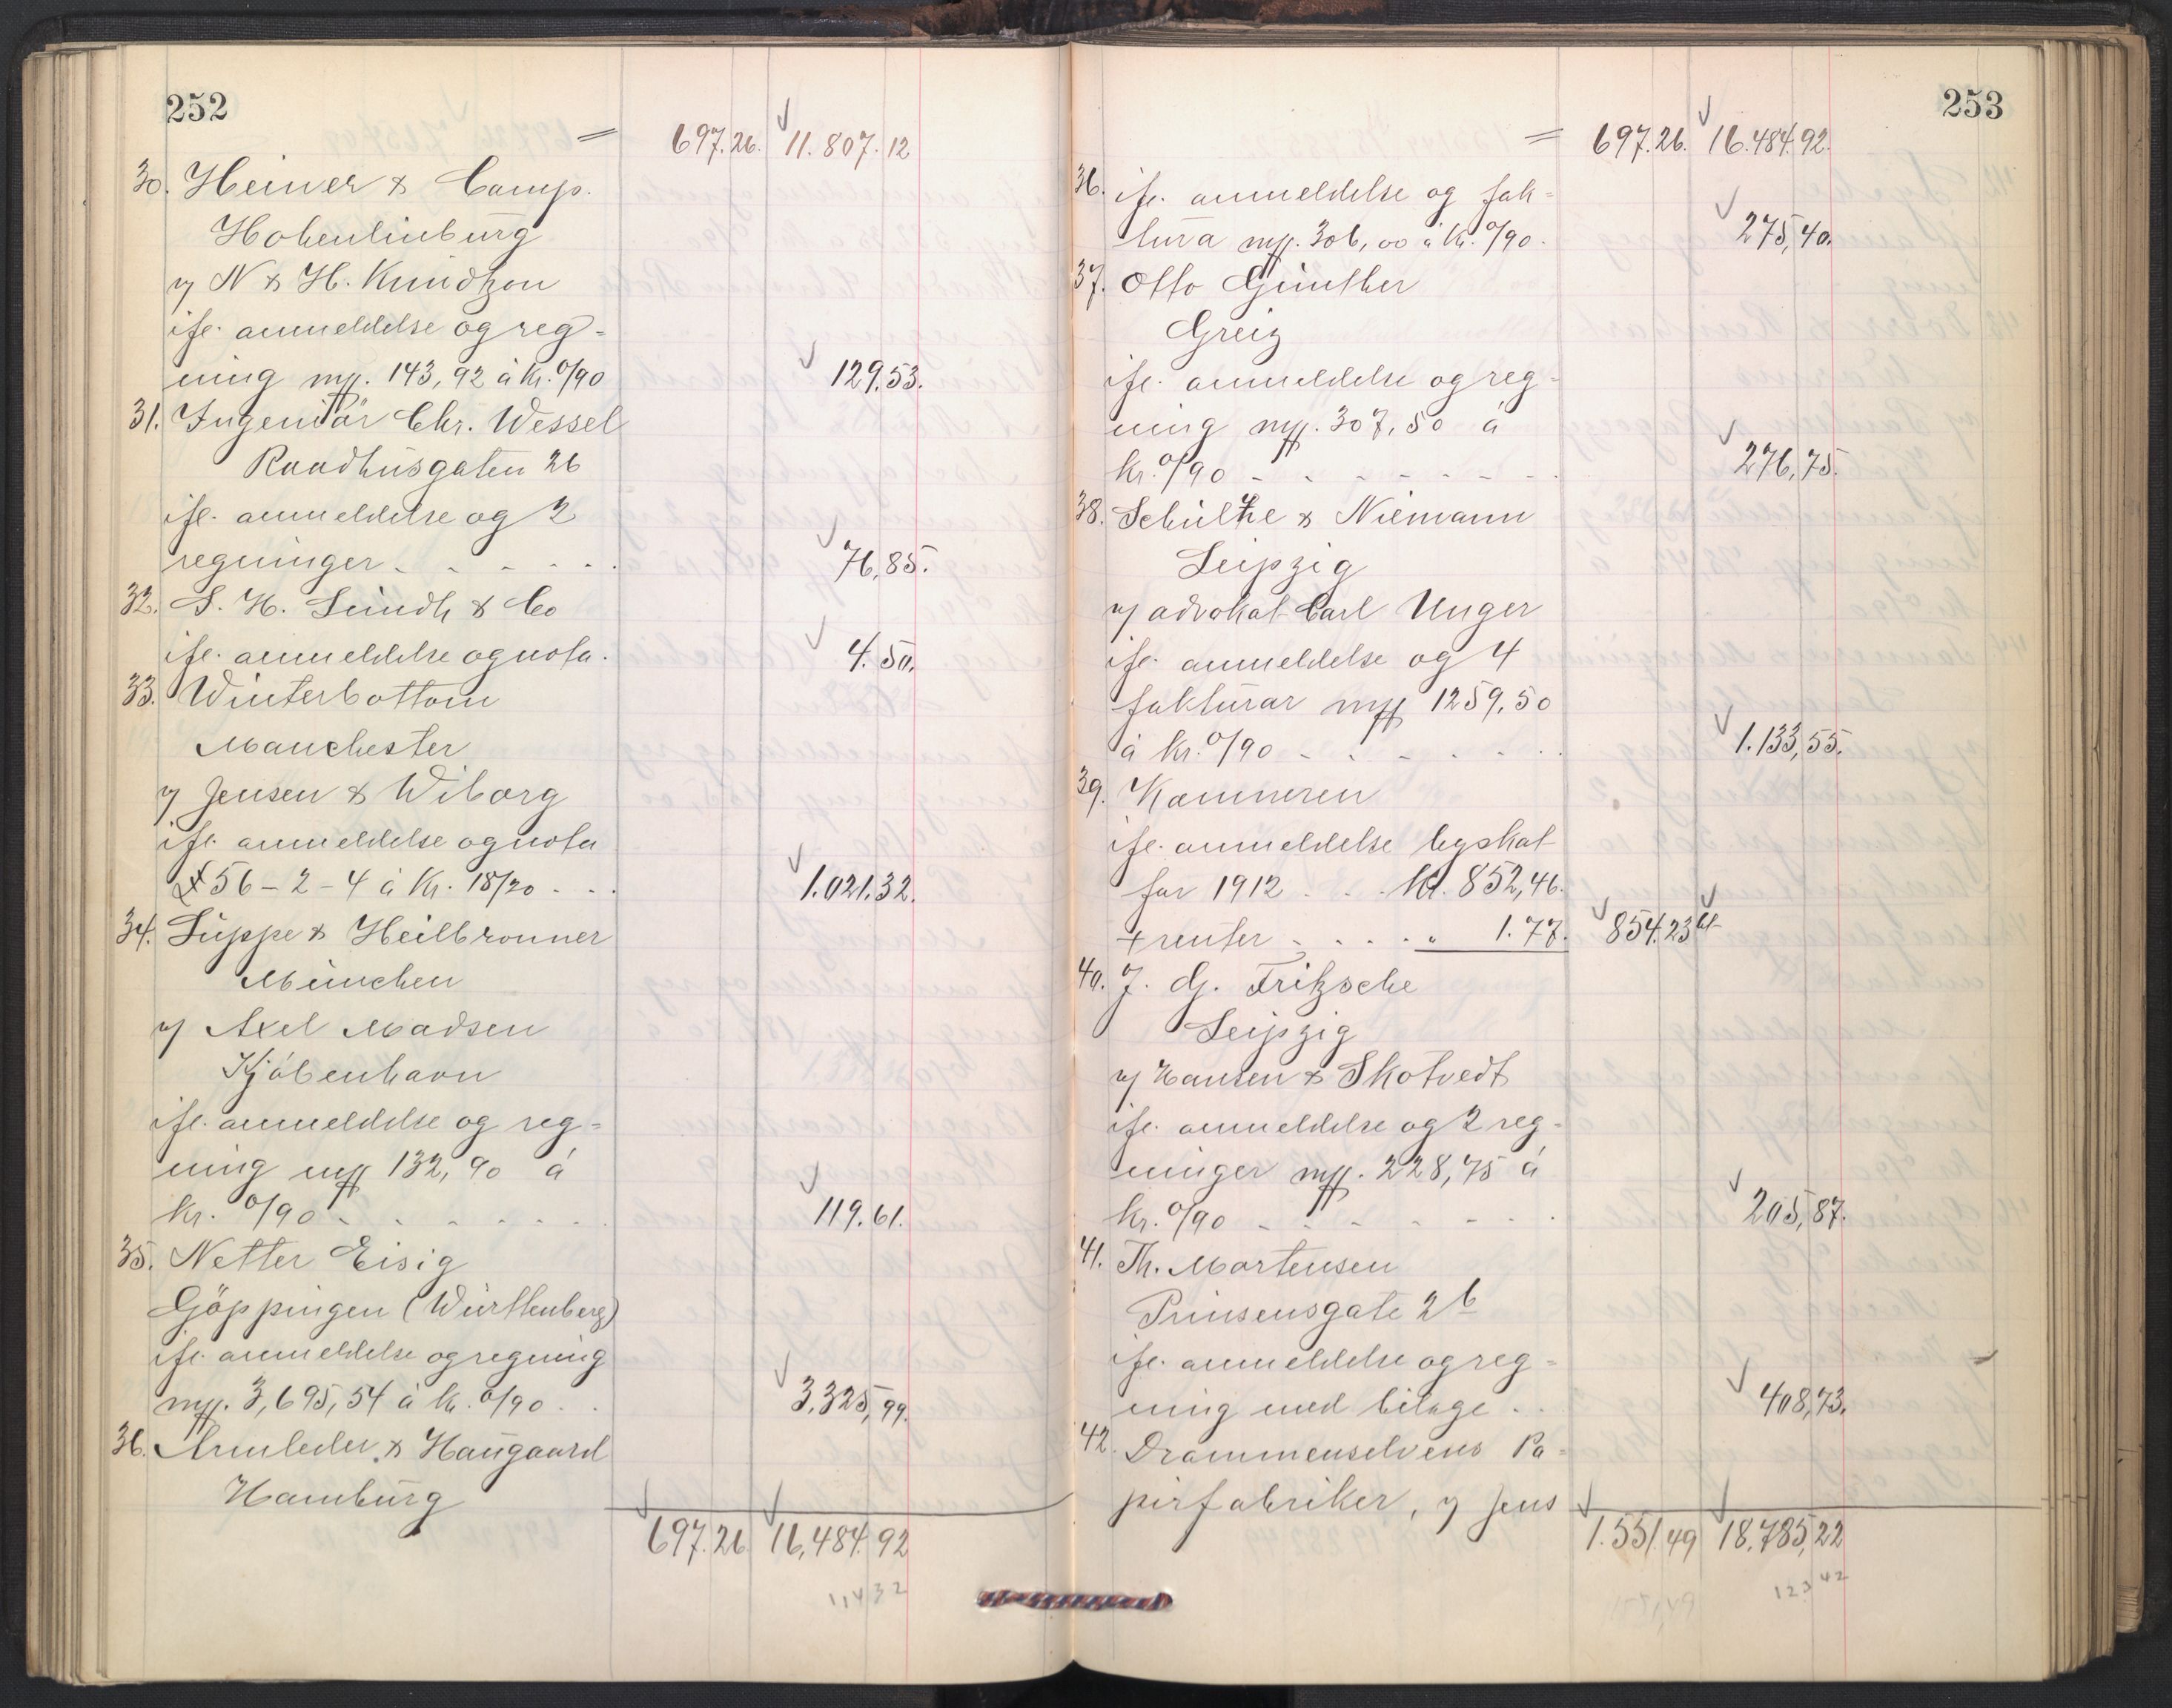 252
= 697.26. 11.807.12
30. Heiner & Comp.
Hohenlimburg
v/ N & H. Knudtzon
ifl. anmeldelse og reg=
ning mp. 143,92 à Kr. 0/90 129.53.
31. Ingeniør Chr. Wessel
Raadhusgaten 26
ifl. anmeldelse og 2
regninger - - - - - 76,85.
32. S. H. Lundh & Co
ifl. anmeldelse og nota. 4.50.
33. Winterbottom
Manchester
v/ Jensen & Wiborg
ifl. anmeldelse og nota
£ 56-2-4 à Kr. 18/20 - - . 1.021.32.
34. Luppe & Heilbronner
München
v/ Axel Madsen
Kjøbenhavn
ifl. anmeldelse og reg=
ning mp 132,90 á
kr. 0/90 - - - - - - 119.61.
35. Netter Eisig
Göppingen (Württenberg)
ifl. anmeldelse og regning
mp. 3,695,54 à kr. 0/90 . . 3,325,99.
36. Armleder & Haugaard
Hamburg
697.26 16,484.92
11432
253
= 697.26. 16.484.92.
36. ifl. anmeldelse og fak=
tura mp. 306,00 à kr. 0/90. 275,40.
37. Otto Günther
Greiz
ifl. anmeldelse og reg=
ning mp. 307,50 á
kr. 0/90 - - - - - - - 276,75.
38. Schultze & Niemann
Leipzig
v/ advokat Carl Unger
ifl. anmeldelse og 4
fakturar mp 1259,50
à kr. 0/90 - - - - - . 1.133,55.
39. Kæmneren
ifl. anmeldelse byskat
for 1912 . . . kr. 852,46.
+ renter - . . . . " 1.77. 854.23
40. J. G. Fritzsche
Leipzig
v/ Hansen & Skotvedt
ifl. anmeldelse og 2 reg=
ninger mp. 228,75 á
kr. 0/90 - - - - - - . 205,87.
41. Th. Mortensen
Prinsensgate 2b
ifl. anmeldelse og reg=
ning med bilage . . 408,73.
42. Drammenselvens Pa=
pirfabriker, v/ Jens
1.551.49 18.785,22
12342